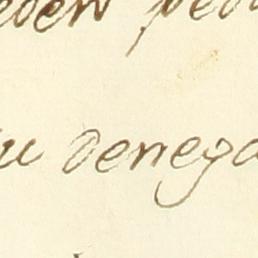 eden ped
u denega